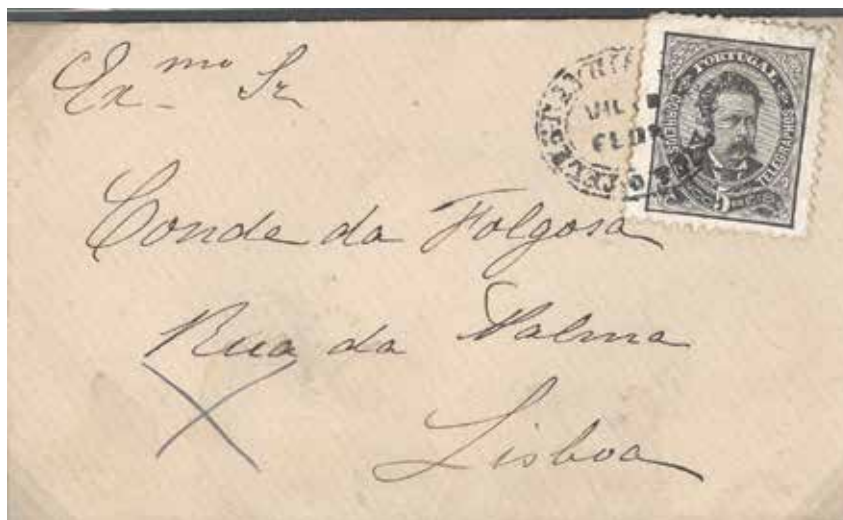 Ex.mo Sr
Conde da Folgosa
Rua da Palma
Lisboa
PORTUGAL
TELEGRAPHO
5